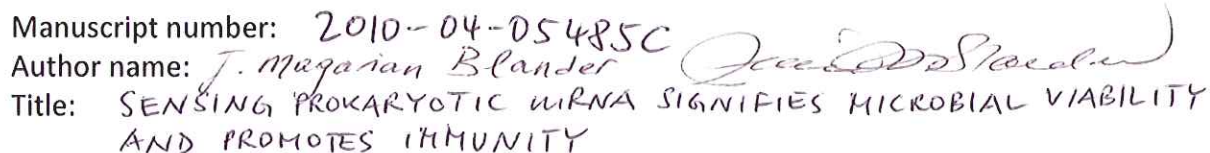 Manuscript number: 2010-04-05485C
Author name: J. Magarian Blander
Title: SENSING PROKARYOTIC mRNA SIGNIFIES MICROBIAL VIABILITY
AND PROMOTES IMMUNITY